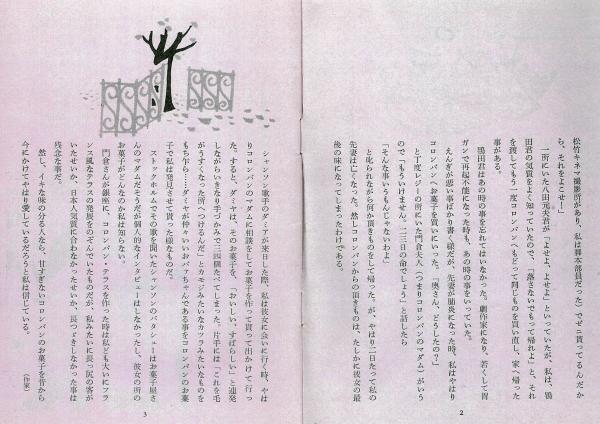 松竹キネマ撮影所があり、私は脚本部員だった)でゼニ貰ってるんだか
ら、それをよこせ!」
一所にいた八田元夫君が「よせよ、よせよ」といっていたが、私は、鴨
田君の気質をよく知っていたので、「落さないでもって帰れよ」と、それ
を渡してもう一度コロンバンへもどって同じものを買い直し、家へ帰った
事がある。
鴨田君はあの時の事を忘れてはいなかった。劇作家になり、若くして胃
ガンで再起不能になった時も、あの時の事をいっていた。
えんぎが悪い事ばかり書く様だが、先妻が肺炎になった時、私はやはり
コロンバンへお菓子を買いにいった。「奥さん、どうしたの?」
と丁度レジーの所にいた門倉夫人(つまりコロンバンのマダム)がいう
ので「もういけません。二三日の命でしょう」と話したら
「そんな事いうもんじゃないわよ」
と叱られながら何か頂きものをして帰った。が、やはり二日たって私の
先妻は亡くなった。然しコロンバンからの頂きものは、たしかに彼女の最
後の味になってしまったわけである。
2
シャンソン歌手のダミアが来日した際、私は彼女に会いに行く時、やは
りコロンバンのマダムに相談をしてお菓子を作って貰って出かけて行っ
た。すると、ダミヤは、そのお菓子を、「おいしい、すばらしい」と連発
しながらいきなり手づかみで三四個たべてしまった。片手には「これを毛
がうすくなった所へつけるんだ」とカモジみたいなカツラみたいなものを
もち乍ら……ダミヤが仲々いいおバアちゃんである事をコロンバンのお菓
子で私は発見させて貰った様なものだ。
ストックホルムでその歌を聞いたシャンソンのパタシューはお菓子屋さ
んのマダムだそうだが個人的なインタビューはしなかったし、彼女の所の
お菓子がどんなのか私は知らない。
門倉さんが銀座に、コロンバン・テラスを作った時は私ども大いにフラ
ンス風なテラスの発展をのぞんでいたものだが、私みたいに長っ尻の客が
いたせいか、日本人気質に合わなかったせいか、長つづきしなかった事は
残念な事だ。
然し、イキな味の分る人なら、甘すぎないコロンバンのお菓子を昔から
今にかけてやはり愛しているだろうと私は信じている。
(作家)
3